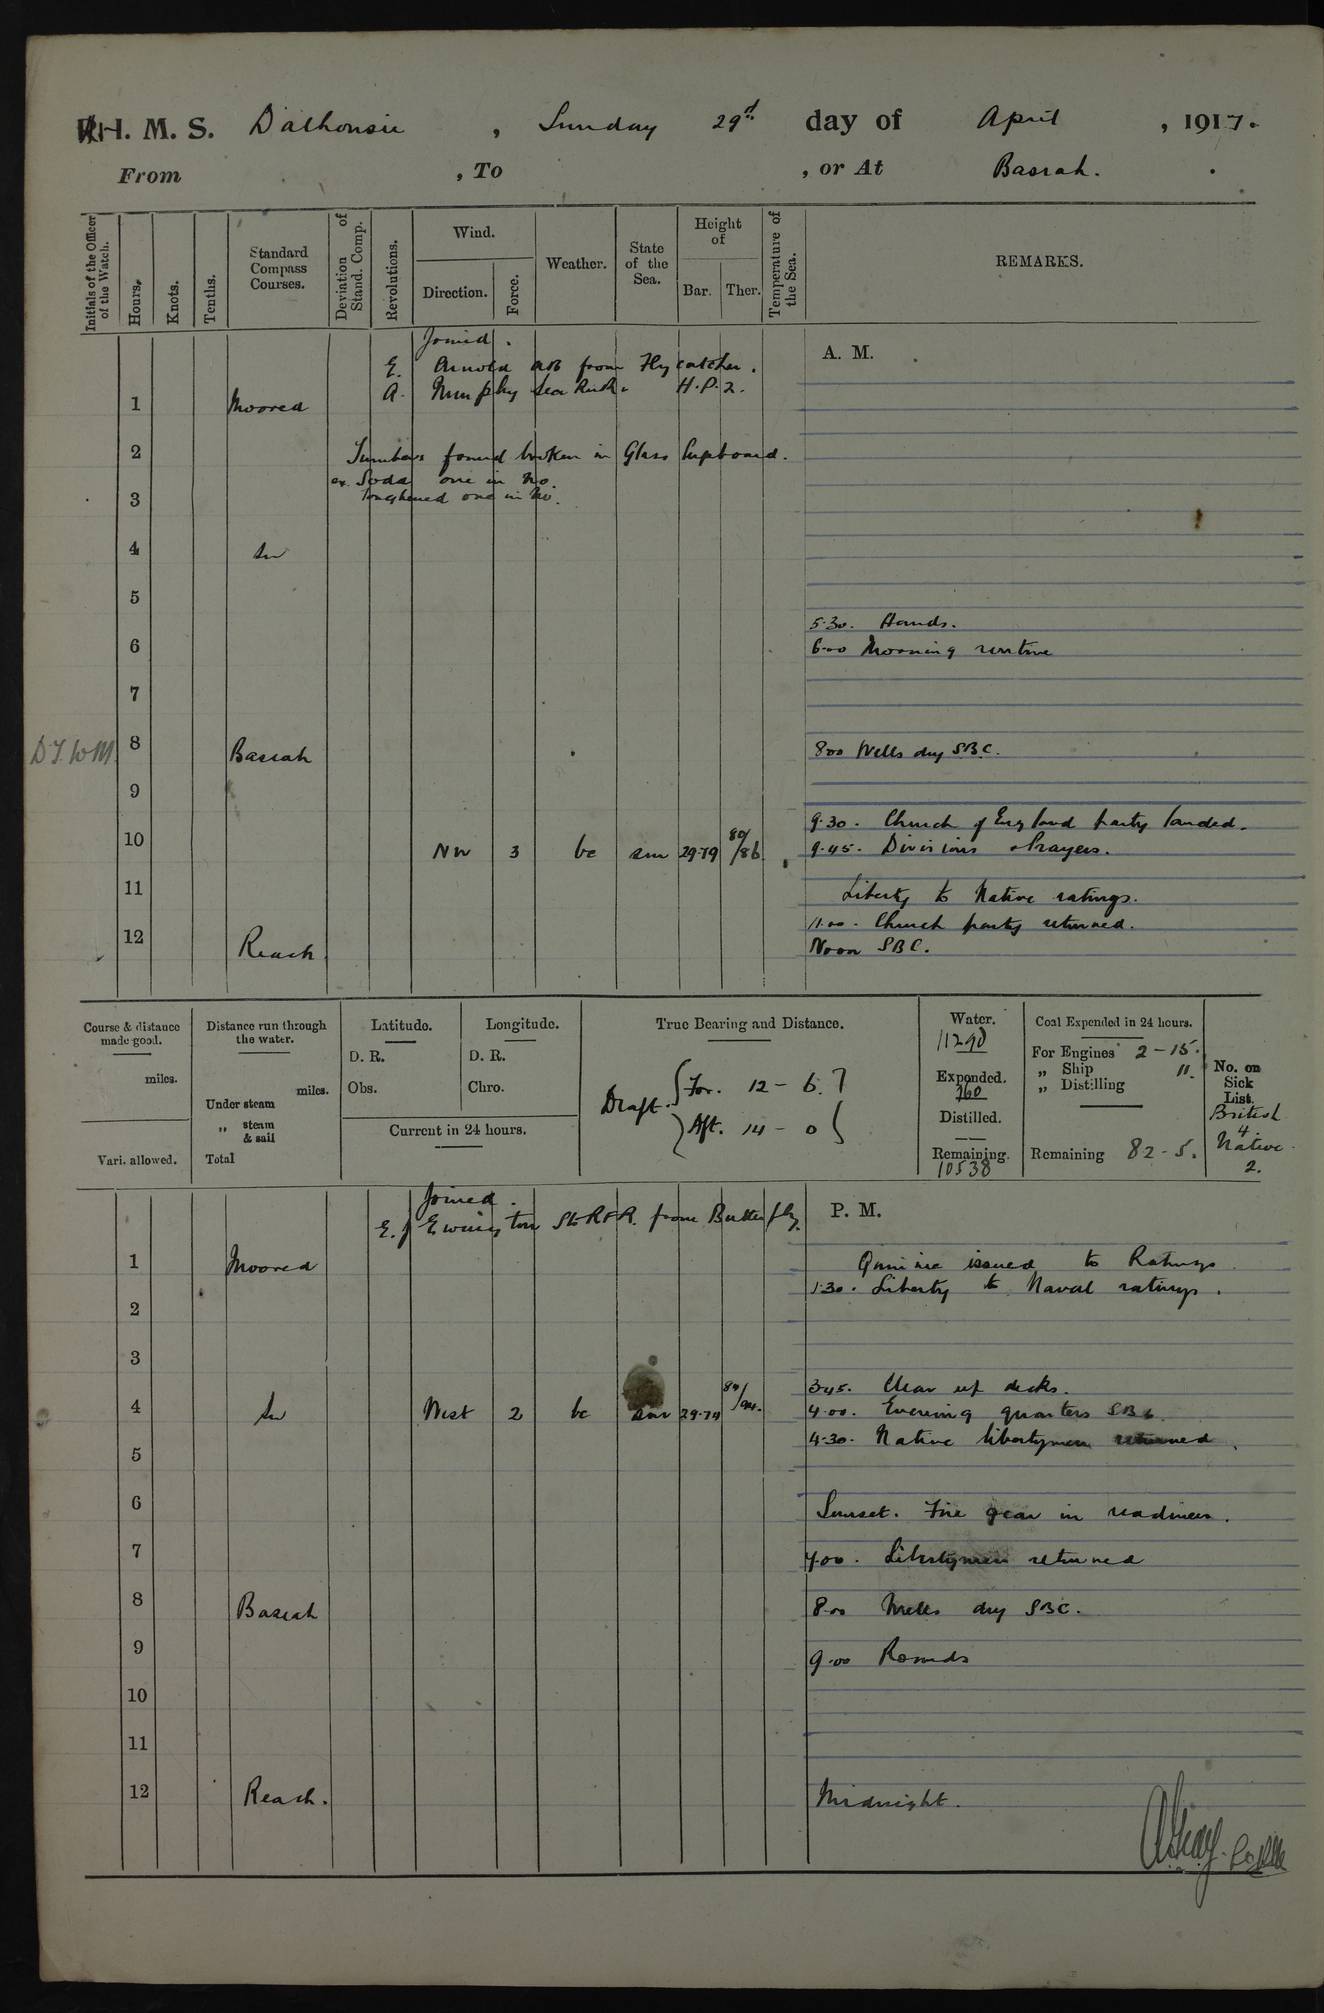 H. M. S. Dalhousie , Sunday 29th day of April , 1917.
From , To , or At Basrah.
Initials of the Officer of the Watch.
Hours.
Knots.
Tenths.
Standard Compass Courses.
Deviation of Stand. Comp.
Revolutions.
Wind.
Direction.
Force.
Weather.
State of the Sea.
Height of
Bar.
Ther.
Temperature of the Sea.
REMARKS.
Joined.
A. M.
E. Arnold AB from Flycatcher.
A. Murphy H.P.2.
1 Moored
2 Tumblers found broken in Glass Cupboard.
Soda one in No.
Toughened one in No.
3
4 in
5
5.30. Hands.
6 6.00 Morning routine
7
8 Basrah 8.00 Wells dry SBC.
9
9.30. Church of England party landed.
10 NW 3 bc sm 29.79 80/86 9.45. Divisions & Prayers.
11 Liberty to Native ratings.
11.00. Church party returned.
12 Reach. Noon SBC.
Course & distance made good.
miles.
Vari. allowed.
Distance run through the water.
miles.
Under steam
„ steam & sail
Total
Latitude.
D. R.
Obs.
Longitude.
D. R.
Chro.
Current in 24 hours.
True Bearing and Distance.
Draft. For. 12 - 6.
Aft. 14 - 0
Water.
11290
Expended.
360
Distilled.
Remaining.
10538
Coal Expended in 24 hours.
For Engines 2 - 15.
„ Ship 11.
„ Distilling
Remaining 82 - 5.
No. on Sick List.
British
4
Native
2.
Joined.
E. J. Ewington Sto RFR. from Butterfly.
P. M.
1 Moored Quinine issued to Ratings
1.30. Liberty to Naval ratings.
2
3
3.45. Clear up decks.
4 in West 2 bc sm 29.74 4.00. Evening quarters SBC
4.30. Native libertymen returned.
5
6 Sunset. Fire gear in readiness.
7 7.00. Libertymen returned
8 Basrah 8.00 Wells dry SBC.
9 9.00 Rounds
10
11
12 Reach. Midnight.